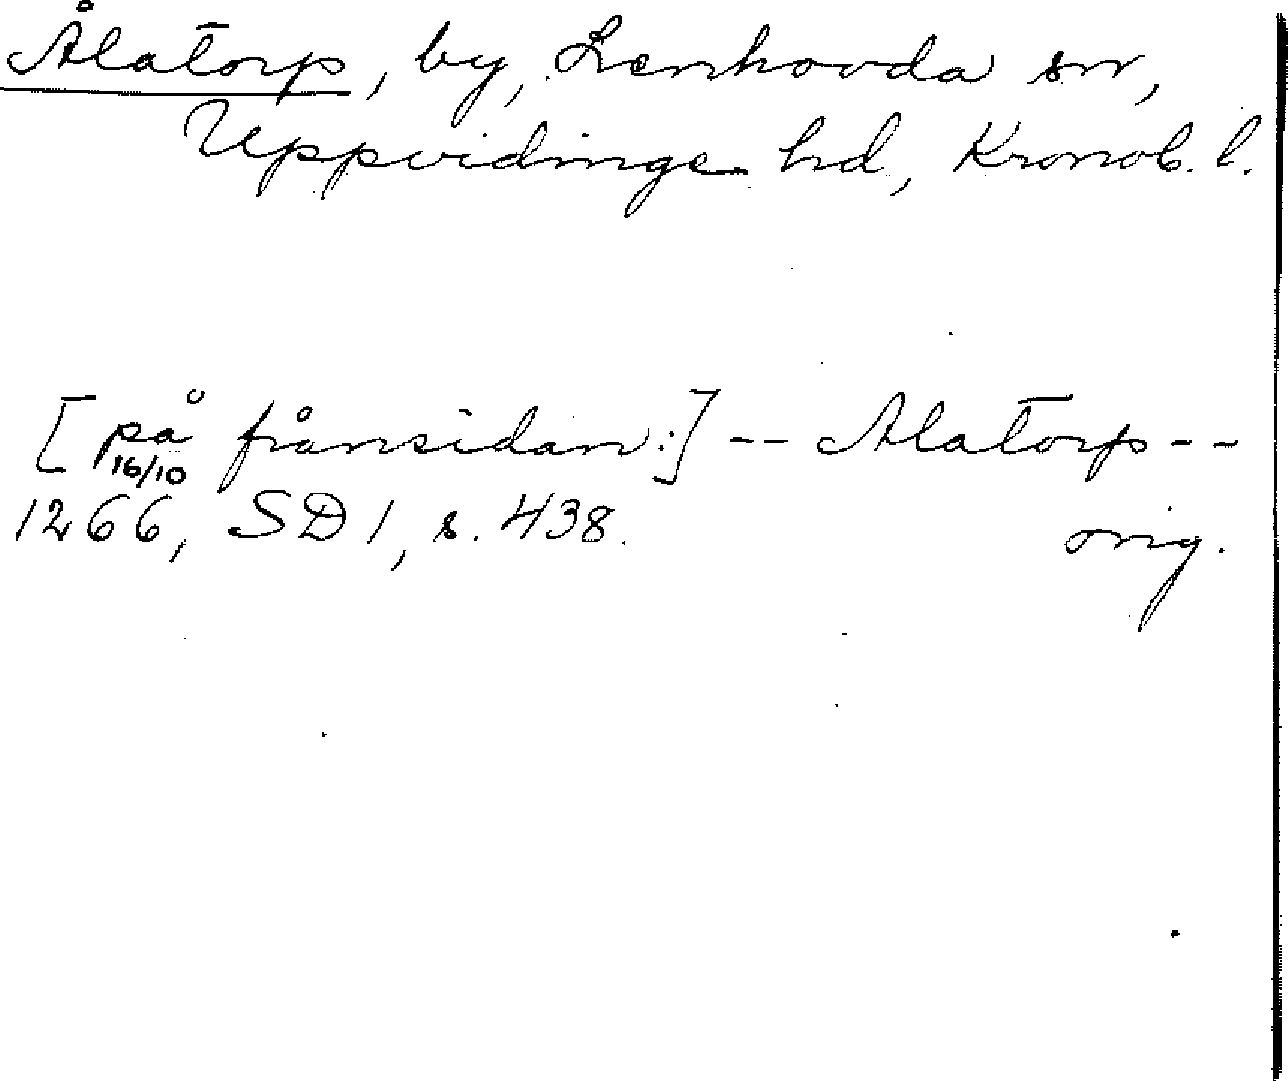 Ålatorp, by, Lenhovda sn,
Uppvidinge hd, Kronob. l.
[på frånsidan:] -- Alatorp --
16/10
1266, SD 1, s. 438.
orig.